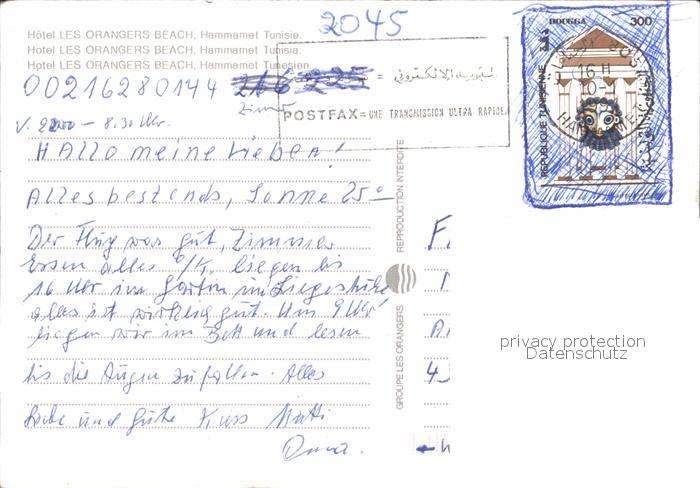 2045
Hôtel LES ORANGERS BEACH, Hammamet Tunisie.
Hotel LES ORANGERS BEACH, Hammamet Tunisia.
Hotel LES ORANGERS BEACH, Hammamet Tunesien.
00216280144
Zimmer
V. 8.30 Uhr.
POSTFAX=UNE TRANSMISSION ULTRA RAPIDE
Hallo meine Lieben!
Alles bestends, Sonne 25°
Der Flug war gut, Zimmer
Essen alles o/k. liegen bis
16 Uhr im Garten im Liegestuhle
alles ist wirklich gut. Um 9 Uhr
liegen wir im Bett und lesen
bis die Augen zufallen. Alles
Liebe und gute Kuss Mutti
Oma.
GROUPE LES ORANGERS
REPRODUCTION INTERDITE
DOUGGA
دقة
300
REPUBLIQUE TUNISIENNE
16 H
privacy protection
Datenschutz